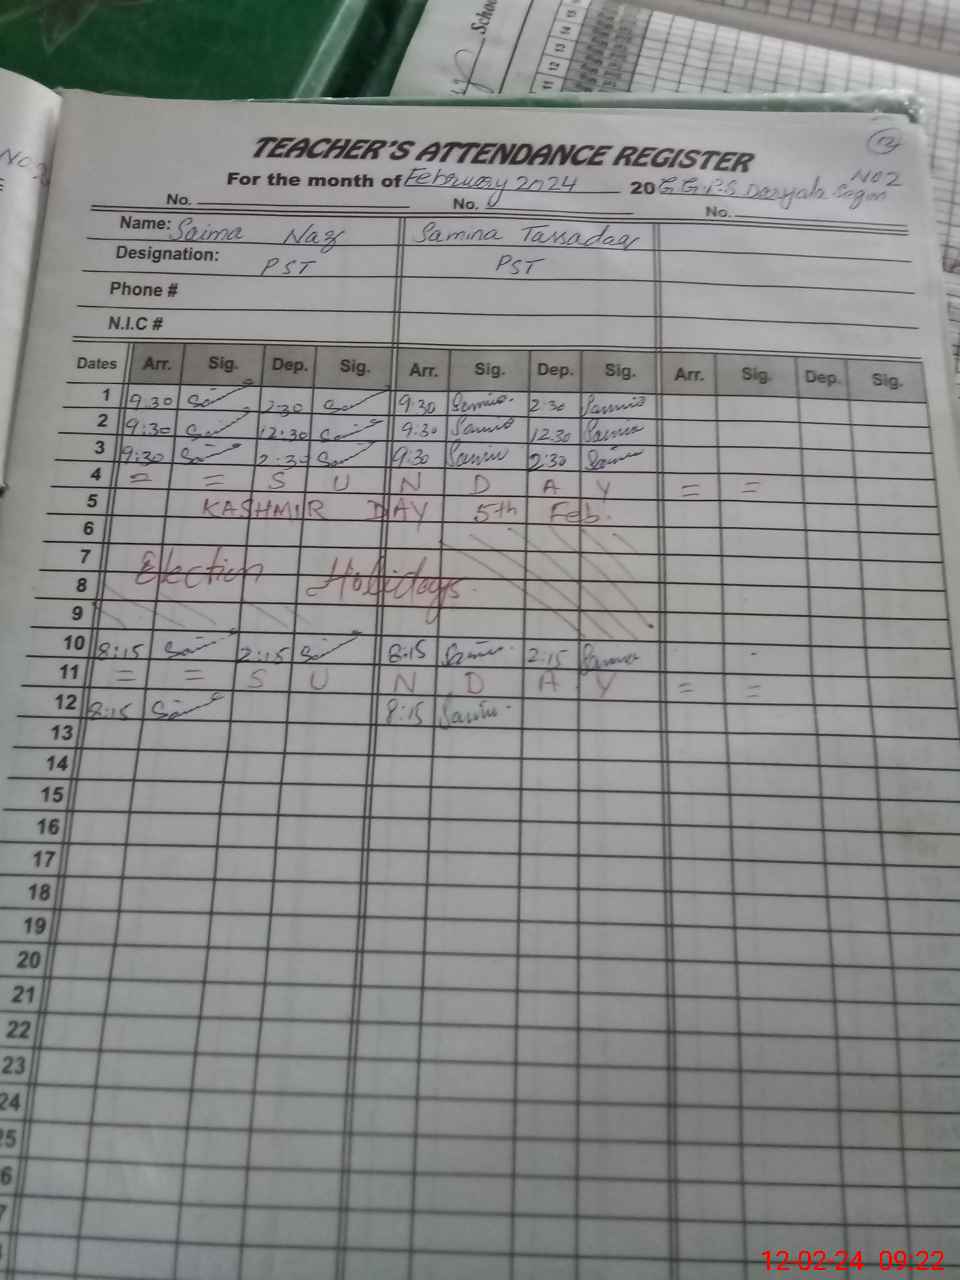 School
11 12 13 14 15
NO 2
TEACHER'S ATTENDANCE REGISTER
For the month of February 2024 20 G.G.P.S Daryah NO 2
No. No. No.
Name: Saima Naz Samina Tassadaq
Designation: PST PST
Phone #
N.I.C #
Dates Arr. Sig. Dep. Sig. Arr. Sig. Dep. Sig. Arr. Sig. Dep. Sig.
1 9.30 2:30 9.30 2:30
2 9:30 12:30 9:30 12.30
3 9:30 2:30 9:30 2:30
4 = = S U N D A Y = =
5 KASHMIR DAY 5th Feb.
6
7 Election Holidays.
8
9
10 8:15 2:15 8:15 2:15
11 = = S U N D A Y = =
12 8:15 8:15
13
14
15
16
17
18
19
20
21
22
23
24
25
6
7
12-02-24 09:22